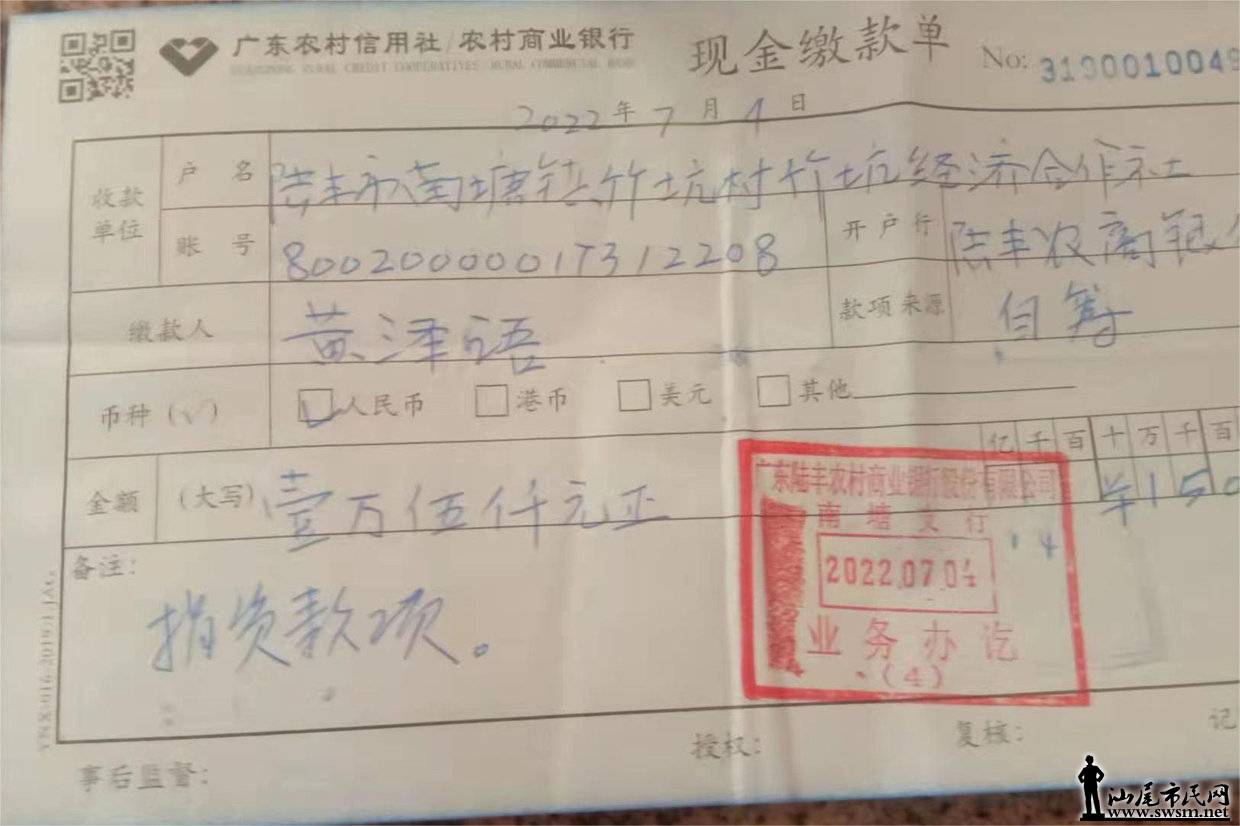 广东农村信用社/农村商业银行
GUANGDONG RURAL CREDIT COOPERATIVES/RURAL COMMERCIAL BANK
现金缴款单
No: 3190010049
2022年7月4日
收款单位
户名 陆丰市南塘镇竹坑村竹坑经济合作社
账号 80020000017312208
开户行 陆丰农商银
缴款人 黄泽语
款项来源 自筹
币种(√) 人民币 港币 美元 其他
亿千百十万千百
金额 (大写) 壹万伍仟元正 ¥150
广东陆丰农村商业银行股份有限公司
南塘支行
2022.07.04
业务办讫
(4)
备注:
捐资款项。
事后监督: 授权: 复核: 记
汕尾市民网
www.swsm.net